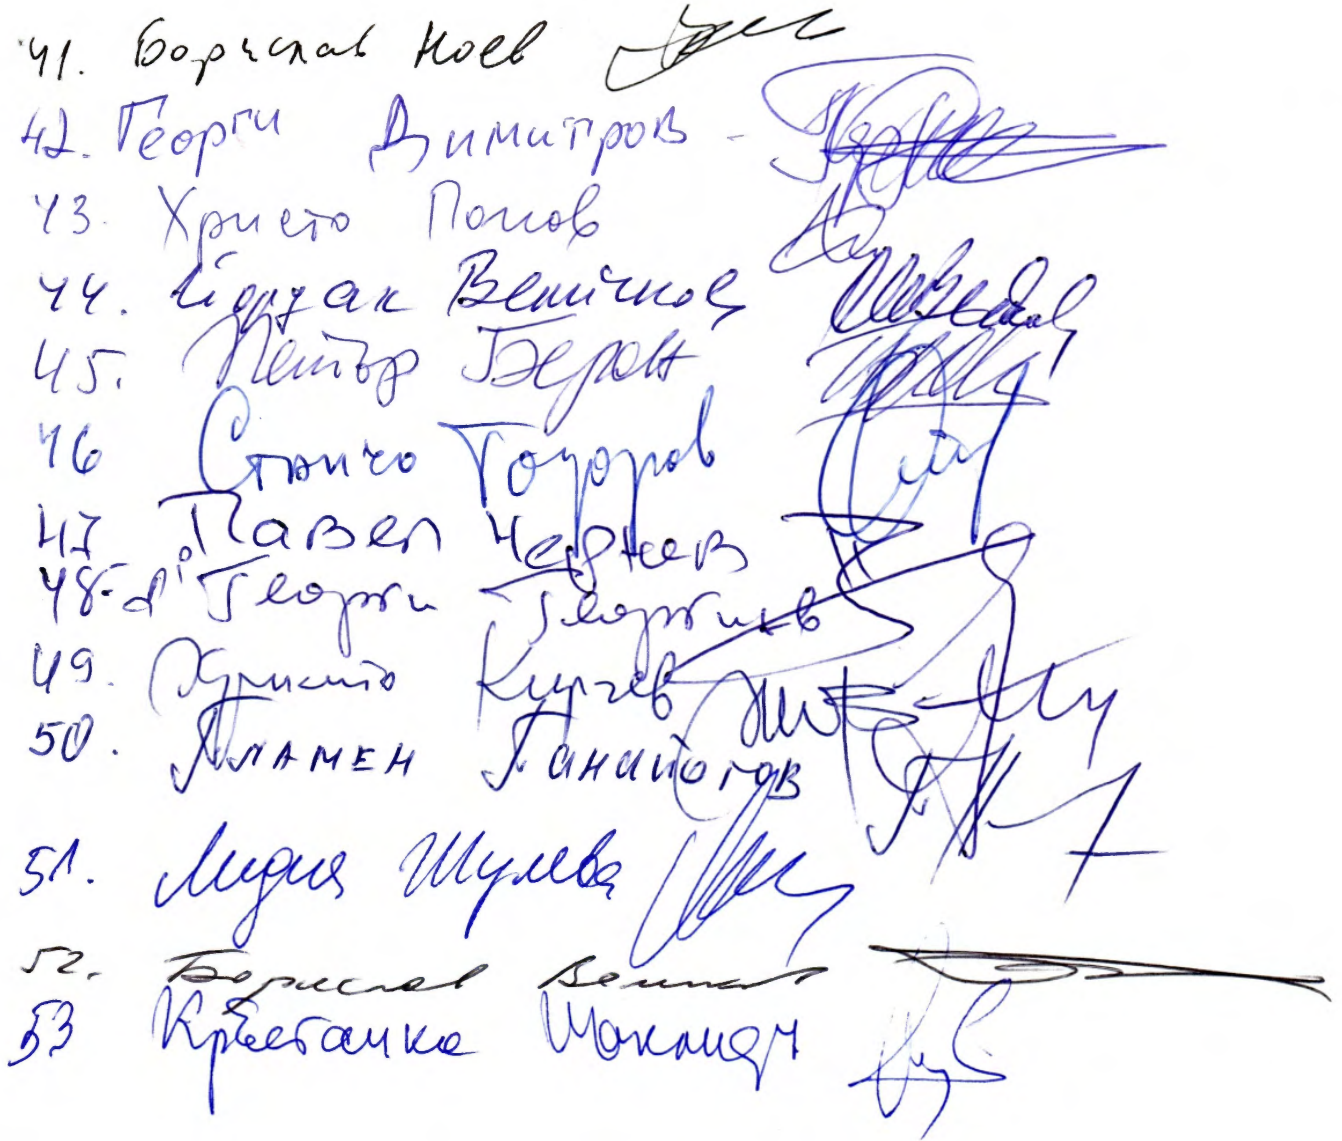 41. Борислав Ноев
42. Георги Димитров -
43. Христо Попов
44. Йордан Величков
45. Петър Берон
46 Станчо Тодоров
47 Павел Чернев
48. Георги Георгиев
49. Христо Кирчев
50. Пламен Панайотов
51. Лидия Шулева
52. Борислав Великов
53 Кръстанка Шаклиян